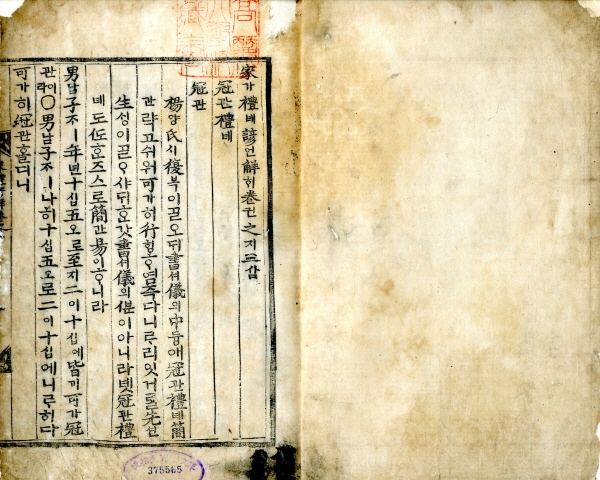 家가禮녜諺언解ᄒᆡ卷권之지三삼
冠관禮녜
冠관
楊양氏시復복이ᄀᆞᆯ오ᄃᆡ書셔儀의中듕애冠관禮녜簡
간략고쉬워可가히行ᄒᆡᆼᄒᆞ염즉다니ᄅᆞ리잇거ᄂᆞᆯ先션
生성이ᄀᆞᆯᄋᆞ샤ᄃᆡᄒᆞᆫ갓書셔儀의ᄲᅮᆫ이아니라녯冠관禮
녜도 스로簡간易이ᄒᆞ니라
男남子ᄌᆞㅣ年년十십五오로至지二이十십에皆ᄀᆡ可가冠
관이라○男남子ᄌᆞㅣ나히十십五오로二이十십에니르히다
可가히冠관홀디니
375565